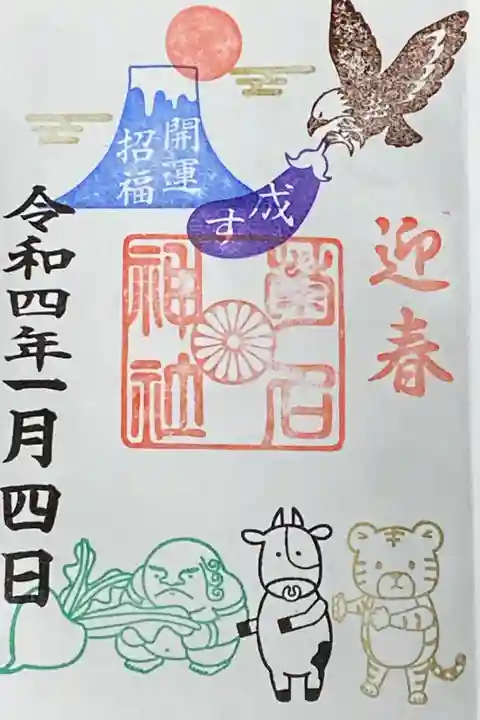 迎春
開運
招福
成す
菊石
神社
令和四年一月四日